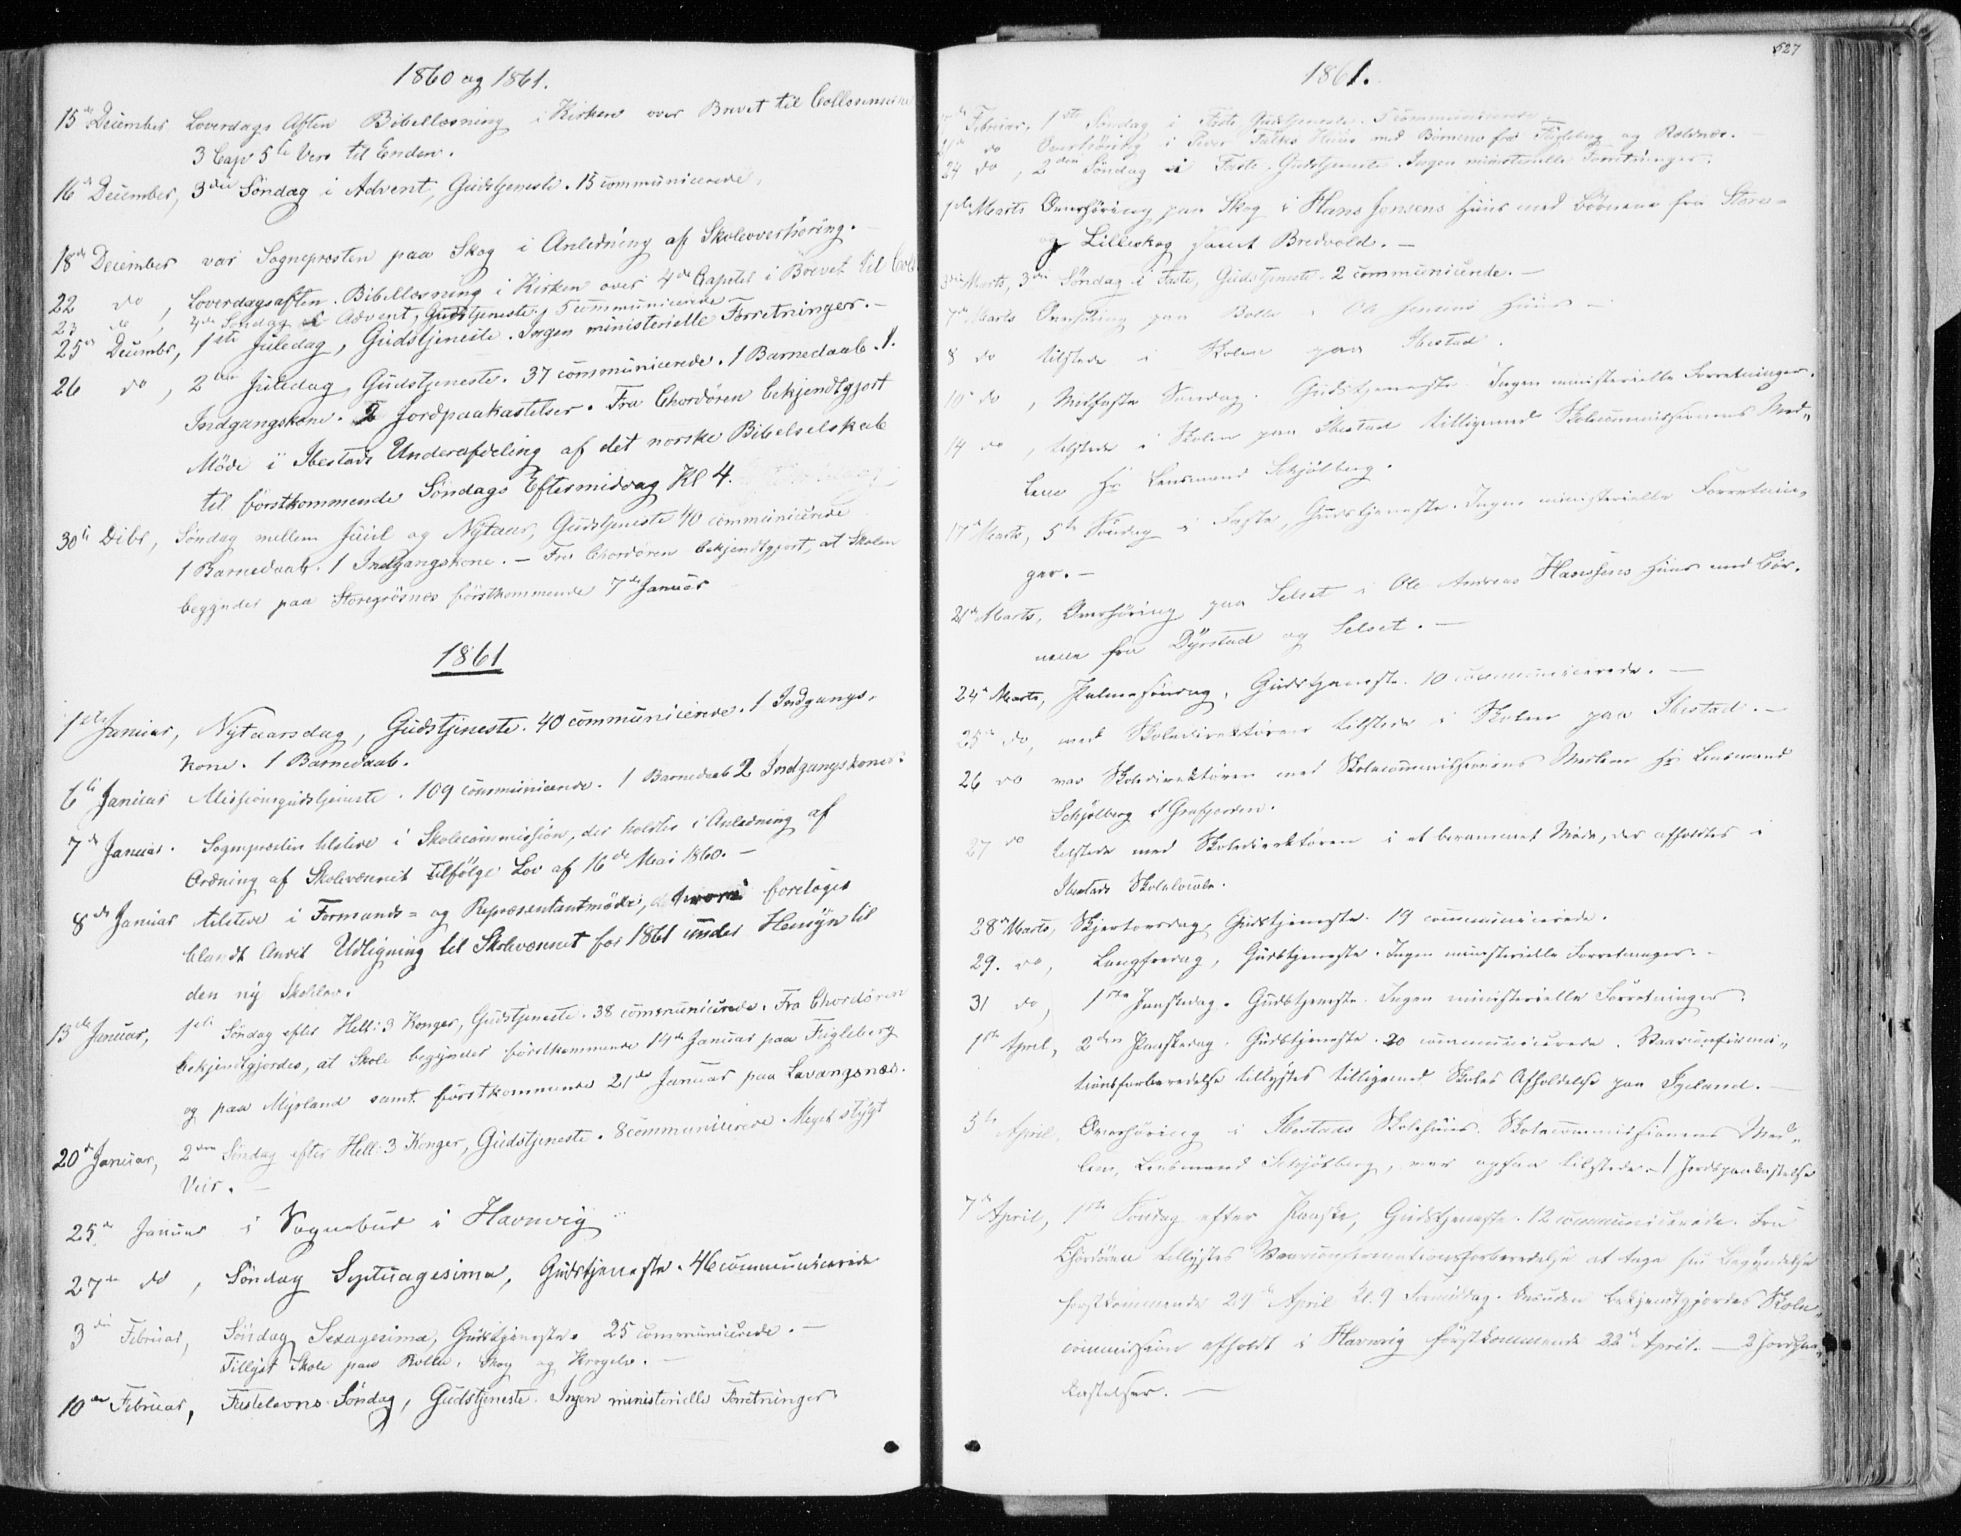 1860 og 1861.
15de December Loverdags Aften Bibellæsning i Kirken over Brevet til Collossenserne
3 Cap 5te Vers til Enden.
16de December, 3die Söndag i Advent, Gudstjeneste. 15 communicerede.
18de December var Sognepresten paa Skog i Anledning af Skoleoverhöring.
22 do, Loverdagsaften Bibellæsning i Kirken over 4de Capitel i Brevet til Col
23 do, 4de Söndag i Advent, Gudstjeneste, 5 communicerede
25de Decembr, 1ste Juledag, Gudstjeneste. Ingen ministerielle Forretninger.-
26 do, 2den Juledag, Gudstjeneste. 37 communicerede. 1 Barnedaab. 1.
Indgangskone. 2 Jordpaakastelser. Fra Chordören bekjendtgjort
Möde i Ibestads Underafdeling af det norske Bibelselskab
til förstkommende Söndags Eftermiddag Kl 4.
30te Decbr, Söndag mellem Juul og Nytaar, Gudstjeneste 40 communicerede
1 Barnedaab. 1 Indgangskone. - Fra Chordören bekjendtgjort, at Skolen
begynder paa Storegrösnes förstkommende 7de Januar
1861
1ste Januar, Nytaarsdag, Gudstjeneste. 40 communicerede. 1 Indgangs-
kone. 1 Barnedaab.
6te Januar Missionsgudstjeneste. 109 communicerede. 1 Barnedaab 2 Indgangskoner.
7de Januar. Sognepresten tilstede i Skolecommission, der holdtes i Anledning af
Ordning af Skolevæsenet tilfölge Lov af 16de Mai 1860.-
8de Januar tilstede i Formands= og Repræsentantmöde, hvori foretoges
blandt Andet Udligning til Skolevæsenet for 1861 under Hensyn til
den ny Skolelov.
13de Januar, 1ste Söndag efter Hell: 3 Konger, Gudstjeneste. 38 communicerede. Fra Chordören
bekjendtgjordes, at Skole begynder förstkommende 14de Januar paa Fugleberg
og paa Myrland samt förstkommende 21de Januar paa Lavangsnes.
20de Januar, 2den Söndag efter Hell: 3 Konger, Gudstjeneste. 8 communicerede. Meget stygt
Veir.-
25de Januar i Sognebud i Havnvig
27de do, Söndag Septuagesima, Gudstjeneste. 46 communicerede
3die Februar, Söndag Sexagesima, Gudstjeneste. 25 communicerede.-
Tillyst Skole paa Rolla, Skog og Krogelv.-
10de Februar, Fastelavns Söndag, Gudstjeneste. Ingen ministerielle Forretninger
527
1861.
Februar, 1ste Söndag i Faste Gudstjeneste. 5 communicerede.
do Overhöring i Peder Falks Huus med Börnene fra Fugleberg og
24 do, 2den Söndag i Faste. Gudstjeneste. Ingen ministerielle Forretninger.
1ste Marts Overhöring paa Skog i Hans Jensens Huus med Börnene fra Store-
og Lilleskog samt Bredvold.-
3die Marts, 3die Söndag i Faste, Gudstjeneste. 2 communicerede.-
7de Marts Overhöring paa Rolla i Ole Jensens Huus-
8 do tilstede i Skolen paa Ibestad.
10de do, Midfaste Söndag. Gudstjeneste. Ingen ministerielle Forretninger.
14 do, tilstede i Skolen paa Ibestad tilligemed Skolecommissionens Med„
lem Hr Lensmand Schjölberg.
17de Marts, 5te Söndag i Faste, Gudstjeneste. Ingen ministerielle Forretnin„
ger.-
21de Marts, Overhöring paa Selset i Ole Andreas Hanssens Huus med Bör-
nene fra Dyrstad og Selset.-
24de Marts, Palmesöndag, Gudstjeneste. 10 communicerede.-
25de do, med Skoledirektören tilstede i Skolen paa Ibestad.-
26 do var Skoledirektören med Skolecommissionens Medlem Hr Lensmand
Schjölberg i Gratfjorden.
27 do tilstede med Skoledirektören i et berammet Möde, der afholdtes i
Ibestads Skolelocale.
28de Marts, Skjertorsdag, Gudstjeneste. 19 communicerede.
29. do, Langfredag, Gudstjeneste. Ingen ministerielle Forretninger.-
31 do, 1ste Paaskedag. Gudstjeneste. Ingen ministerielle Forretninger.
1ste April, 2den Paaskedag. Gudstjeneste. 20 communicerede. Vaarconfirma„
tionsforberedelse tillystes tilligemed Skoles Afholdelse paa Igeland.-
5te April, Overhöring i Ibestads Skolehuus. Skolecommissionens Med„
lem, Lensmand Schjölberg, var ogsaa tilstede.- 1 Jordpaakastelse
7de April, 1ste Söndag efter Paaske, Gudstjeneste. 12 communicerede. Fra
Chordören tillystes Vaarconfirmationsforberedelse at tage sin Begyndelse
förstkommende 29de April Kl. 9 Formiddag. Desuden bekjendtgjordes Skole„
commission afholdt i Havnvig förstkommende 22de April.- 2 Jordpaa„
kastelser.-